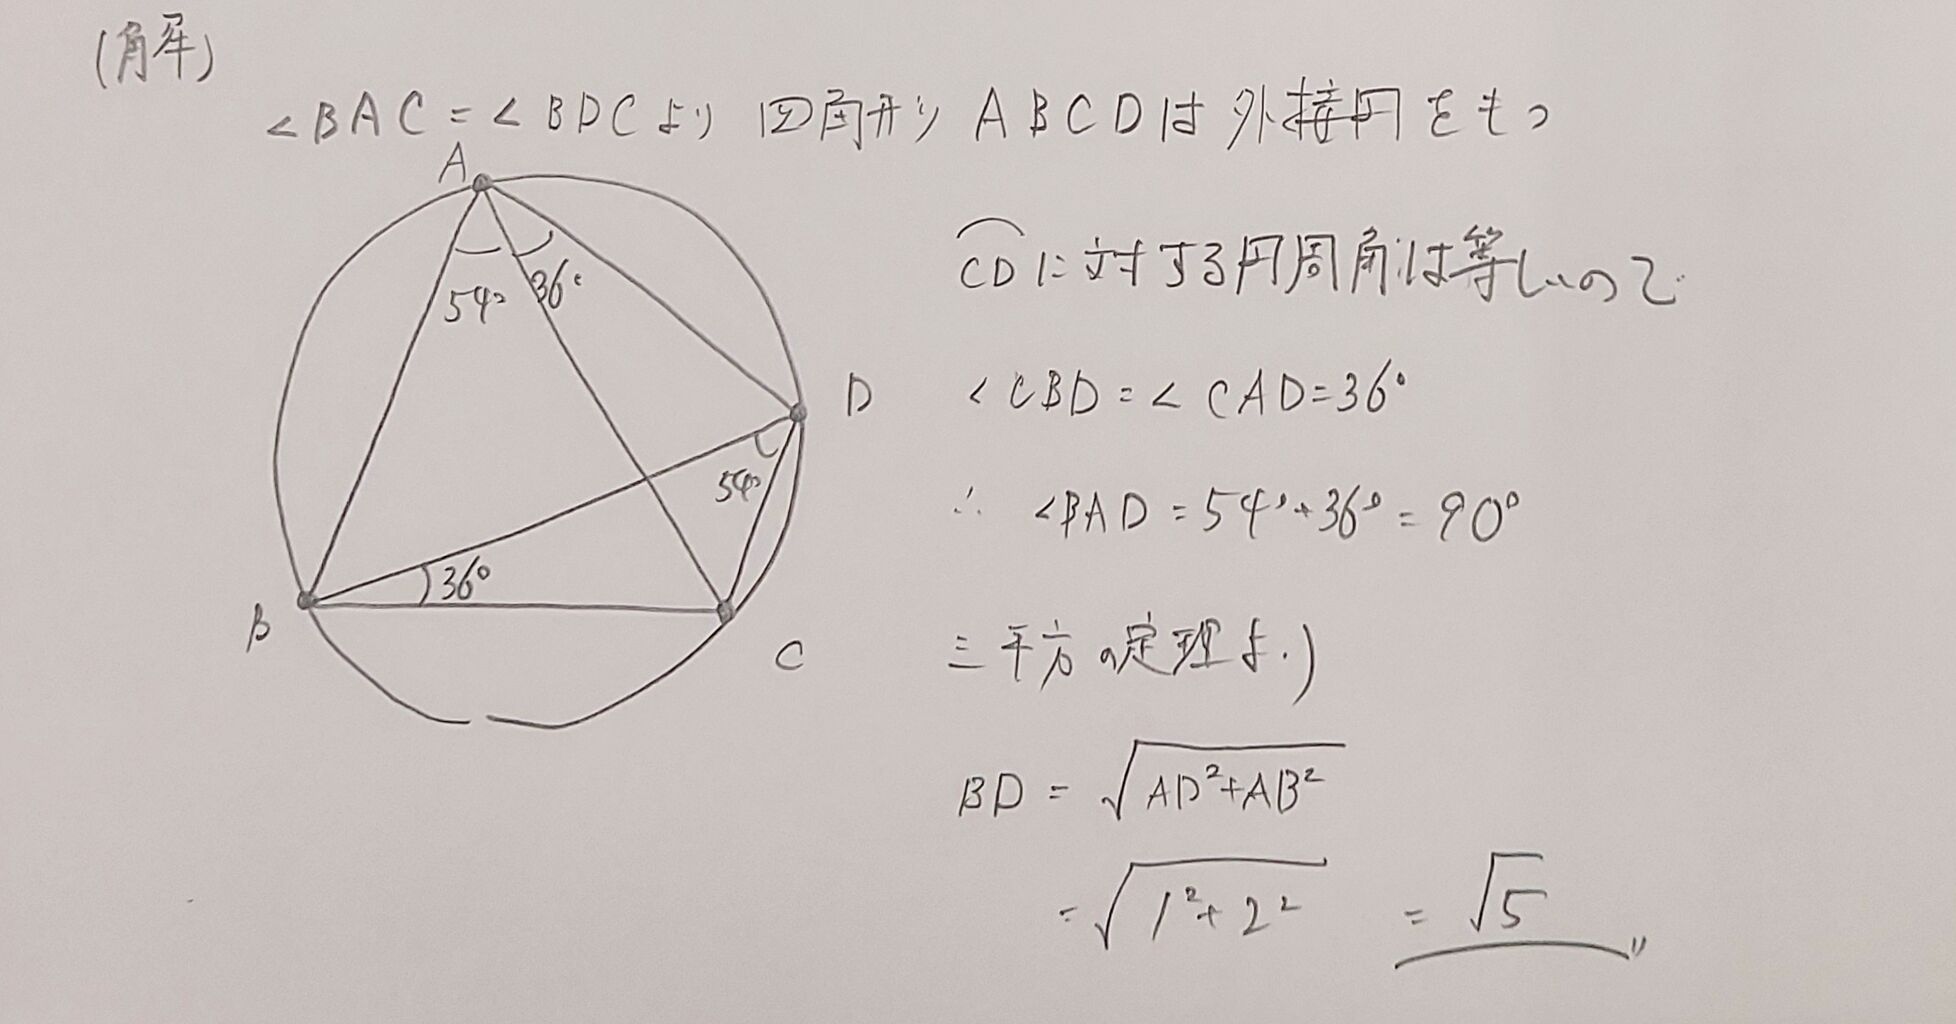 (解)
∠BAC=∠BDCより 四角形 ABCDは外接円をもつ
A
54° 36°
D
54°
36°
B
C
⌒CDに対する円周角は等しいので
∠CBD=∠CAD=36°
∴ ∠BAD=54°+36°=90°
三平方の定理より
BD = √(AD²+AB²)
=√(1²+2²) = √5